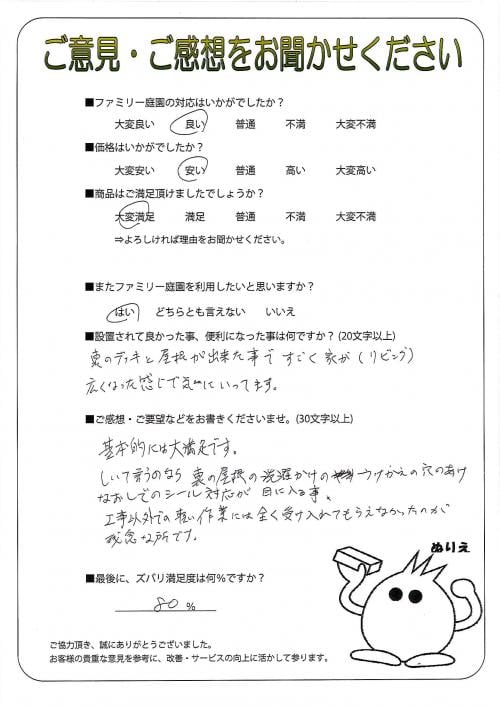 ご意見・ご感想をお聞かせください
■ファミリー庭園の対応はいかがでしたか?
大変良い 良い 普通 不満 大変不満
■価格はいかがでしたか?
大変安い 安い 普通 高い 大変高い
■商品はご満足頂けましたでしょうか?
大変満足 満足 普通 不満 大変不満
⇒よろしければ理由をお聞かせください。
■またファミリー庭園を利用したいと思いますか?
はい どちらとも言えない いいえ
■設置されて良かった事、便利になった事は何ですか? (20文字以上)
裏のデッキと屋根が出来た事ですごく家が(リビング)
広くなった感じで気にいってます。
■ご感想・ご要望などをお書きくださいませ。(30文字以上)
基本的には大満足です。
しいて言うのなら 裏の屋根の洗濯かけの つけかえの穴のあけ
なおしでのシール対応が 目に入る事。
工事以外での軽い作業には全く受け入れてもらえなかったのが
残念な所です。
ぬりえ
■最後に、ズバリ満足度は何%ですか?
80 %
ご協力頂き、誠にありがとうございました。
お客様の貴重な意見を参考に、改善・サービスの向上に活かして参ります。